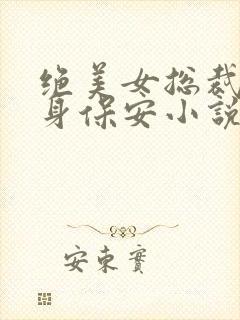 绝美女总裁
身保安小説
安東實